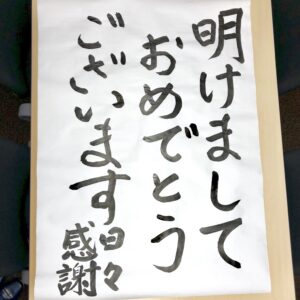 明けまして
おめでとう
ございます
日々
感謝